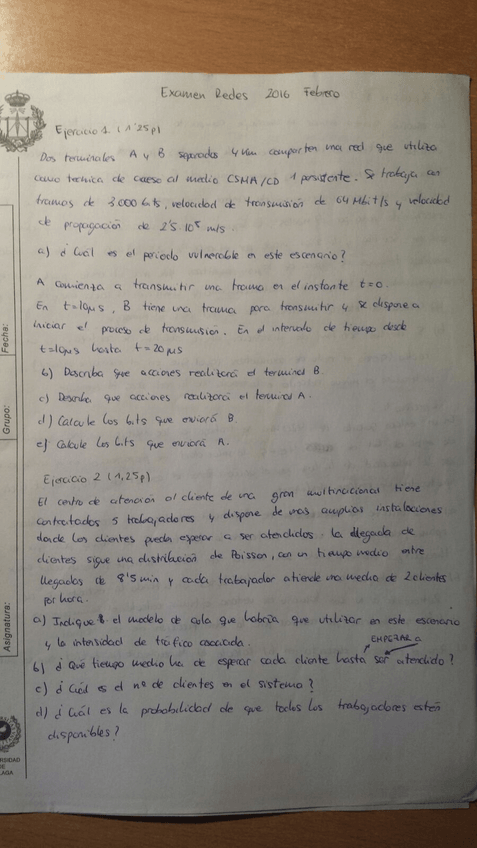 Examen Redes 2016 Febrero
Ejercicio 1. (1'25p)
Dos terminales A y B separados 4 km comparten una red que utiliza
como tecnica de acceso al medio CSMA/CD 1 persistente. Se trabaja con
tramas de 3000 bits, velocidad de transmisión de 64 Mbit/s y velocidad
de propagación de 2'5 10⁸ m/s.
a) ¿Cuál es el periodo vulnerable en este escenario?
A comienza a transmitir una trama en el instante t=0.
En t=10μs, B tiene una trama para transmitir y se dispone a
iniciar el proceso de transmisión. En el intervalo de tiempo desde
t=10μs hasta t=20μs
b) Describa que acciones realizará el terminal B.
c) Describa que acciones realizará el terminal A.
d) Calcule los bits que enviará B.
e) Calcule los bits que enviará A.
Ejercicio 2 (1,25p)
El centro de atención al cliente de una gran multinacional tiene
contratados 5 trabajadores y dispone de unas amplias instalaciones
donde los clientes pueden esperar a ser atendidos. La llegada de
clientes sigue una distribución de Poisson, con un tiempo medio entre
llegadas de 8'5 min y cada trabajador atiende una media de 2 clientes
por hora.
a) Indique el modelo de cola que habría que utilizar en este escenario
y la intensidad de tráfico asociada.
EMPEZAR a
b) ¿Qué tiempo medio ha de esperar cada cliente hasta ser atendido?
c) ¿Cuál es el nº de clientes en el sistema?
d) ¿Cuál es la probabilidad de que todos los trabajadores estén
disponibles?
Fecha:
Grupo:
Asignatura:
DE
LAGA